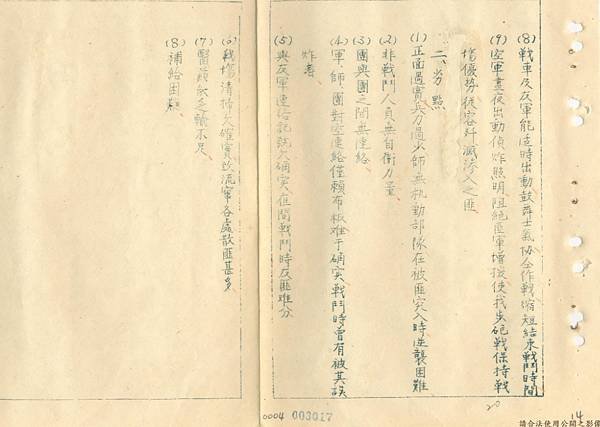 (8) 戰車及友軍能適時出動鼓舞士氣協仝作戰縮短結束戰鬥時間
(9) 空軍晝夜出動偵炸照明阻絕匪軍增援使我步砲戰保持戰
場優勢從容歼滅滲入之匪
二、劣點
(1) 正面過寬兵力過少師無机動部隊在被匪突入時逆襲困難
(2) 非戰鬥人員無自衛力量
(3) 團與團之間無連絡
(4) 軍、師、團對空連絡僅賴布板难于确实戰鬥時曾有被其誤
炸者
(5) 與友軍連絡記號欠确实在間戰鬥時友匪难分
(6) 戰場清掃欠確實致流竄各處散匪甚多
(7) 醫药救護不足
(8) 補給困難
0004 003017
20
14
請合法使用公開之影像